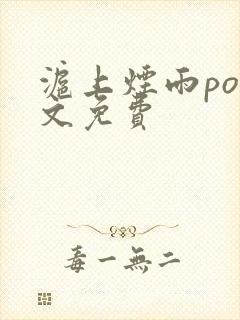 滬上煙雨po
文免費
毒一無二